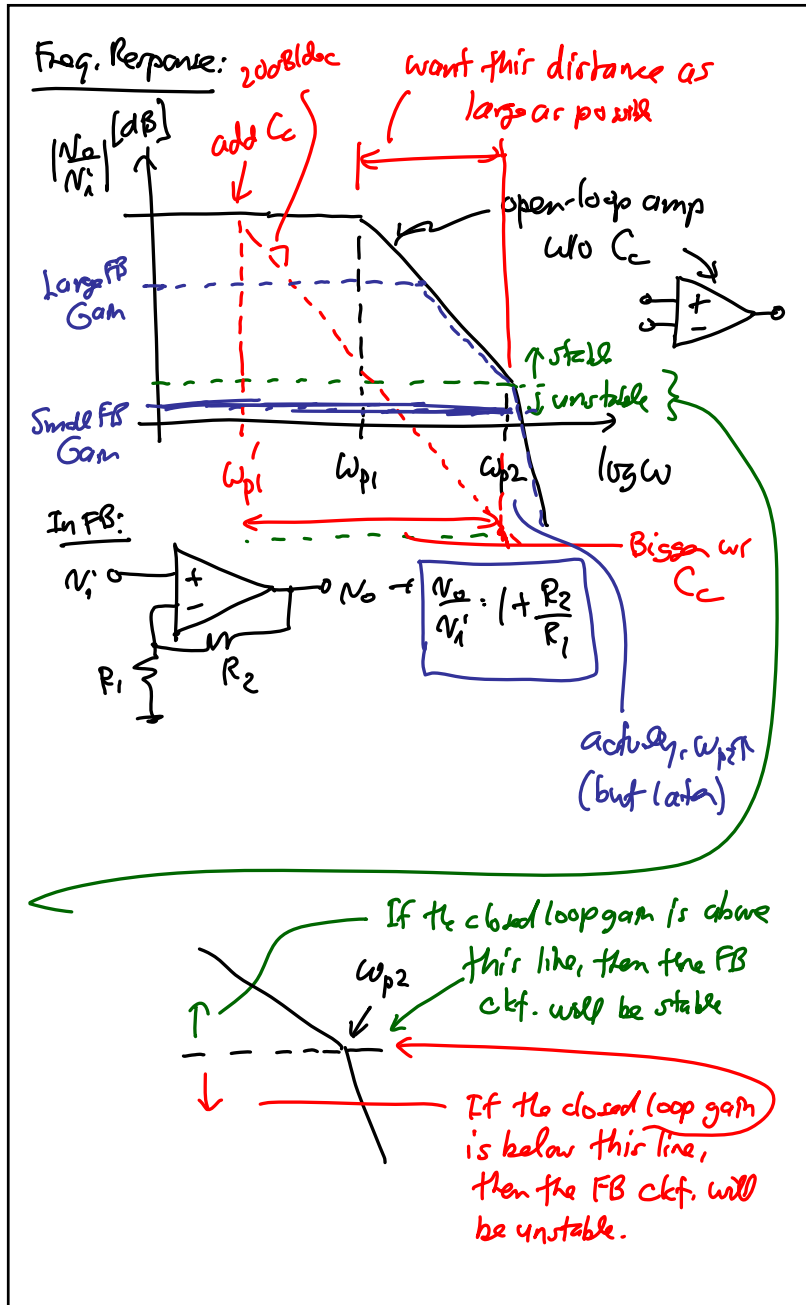 Freq. Response:
20dB/dec
want this distance as
large as possible
|No/Ni| [dB]
add Cc
open-loop amp
w/o Cc
Large FB
Gain
+
−
↑ stable
↓ unstable
Small FB
Gain
ωp1
ωp1
ωp2
log ω
In FB:
Bigger w/
Cc
Ni
+
−
No → No/Ni = 1 + R2/R1
R1
R2
actually, ωp2↑
(but later)
If the closed loop gain is above
this line, then the FB
ckt. will be stable
ωp2
If the closed loop gain
is below this line,
then the FB ckt. will
be unstable.